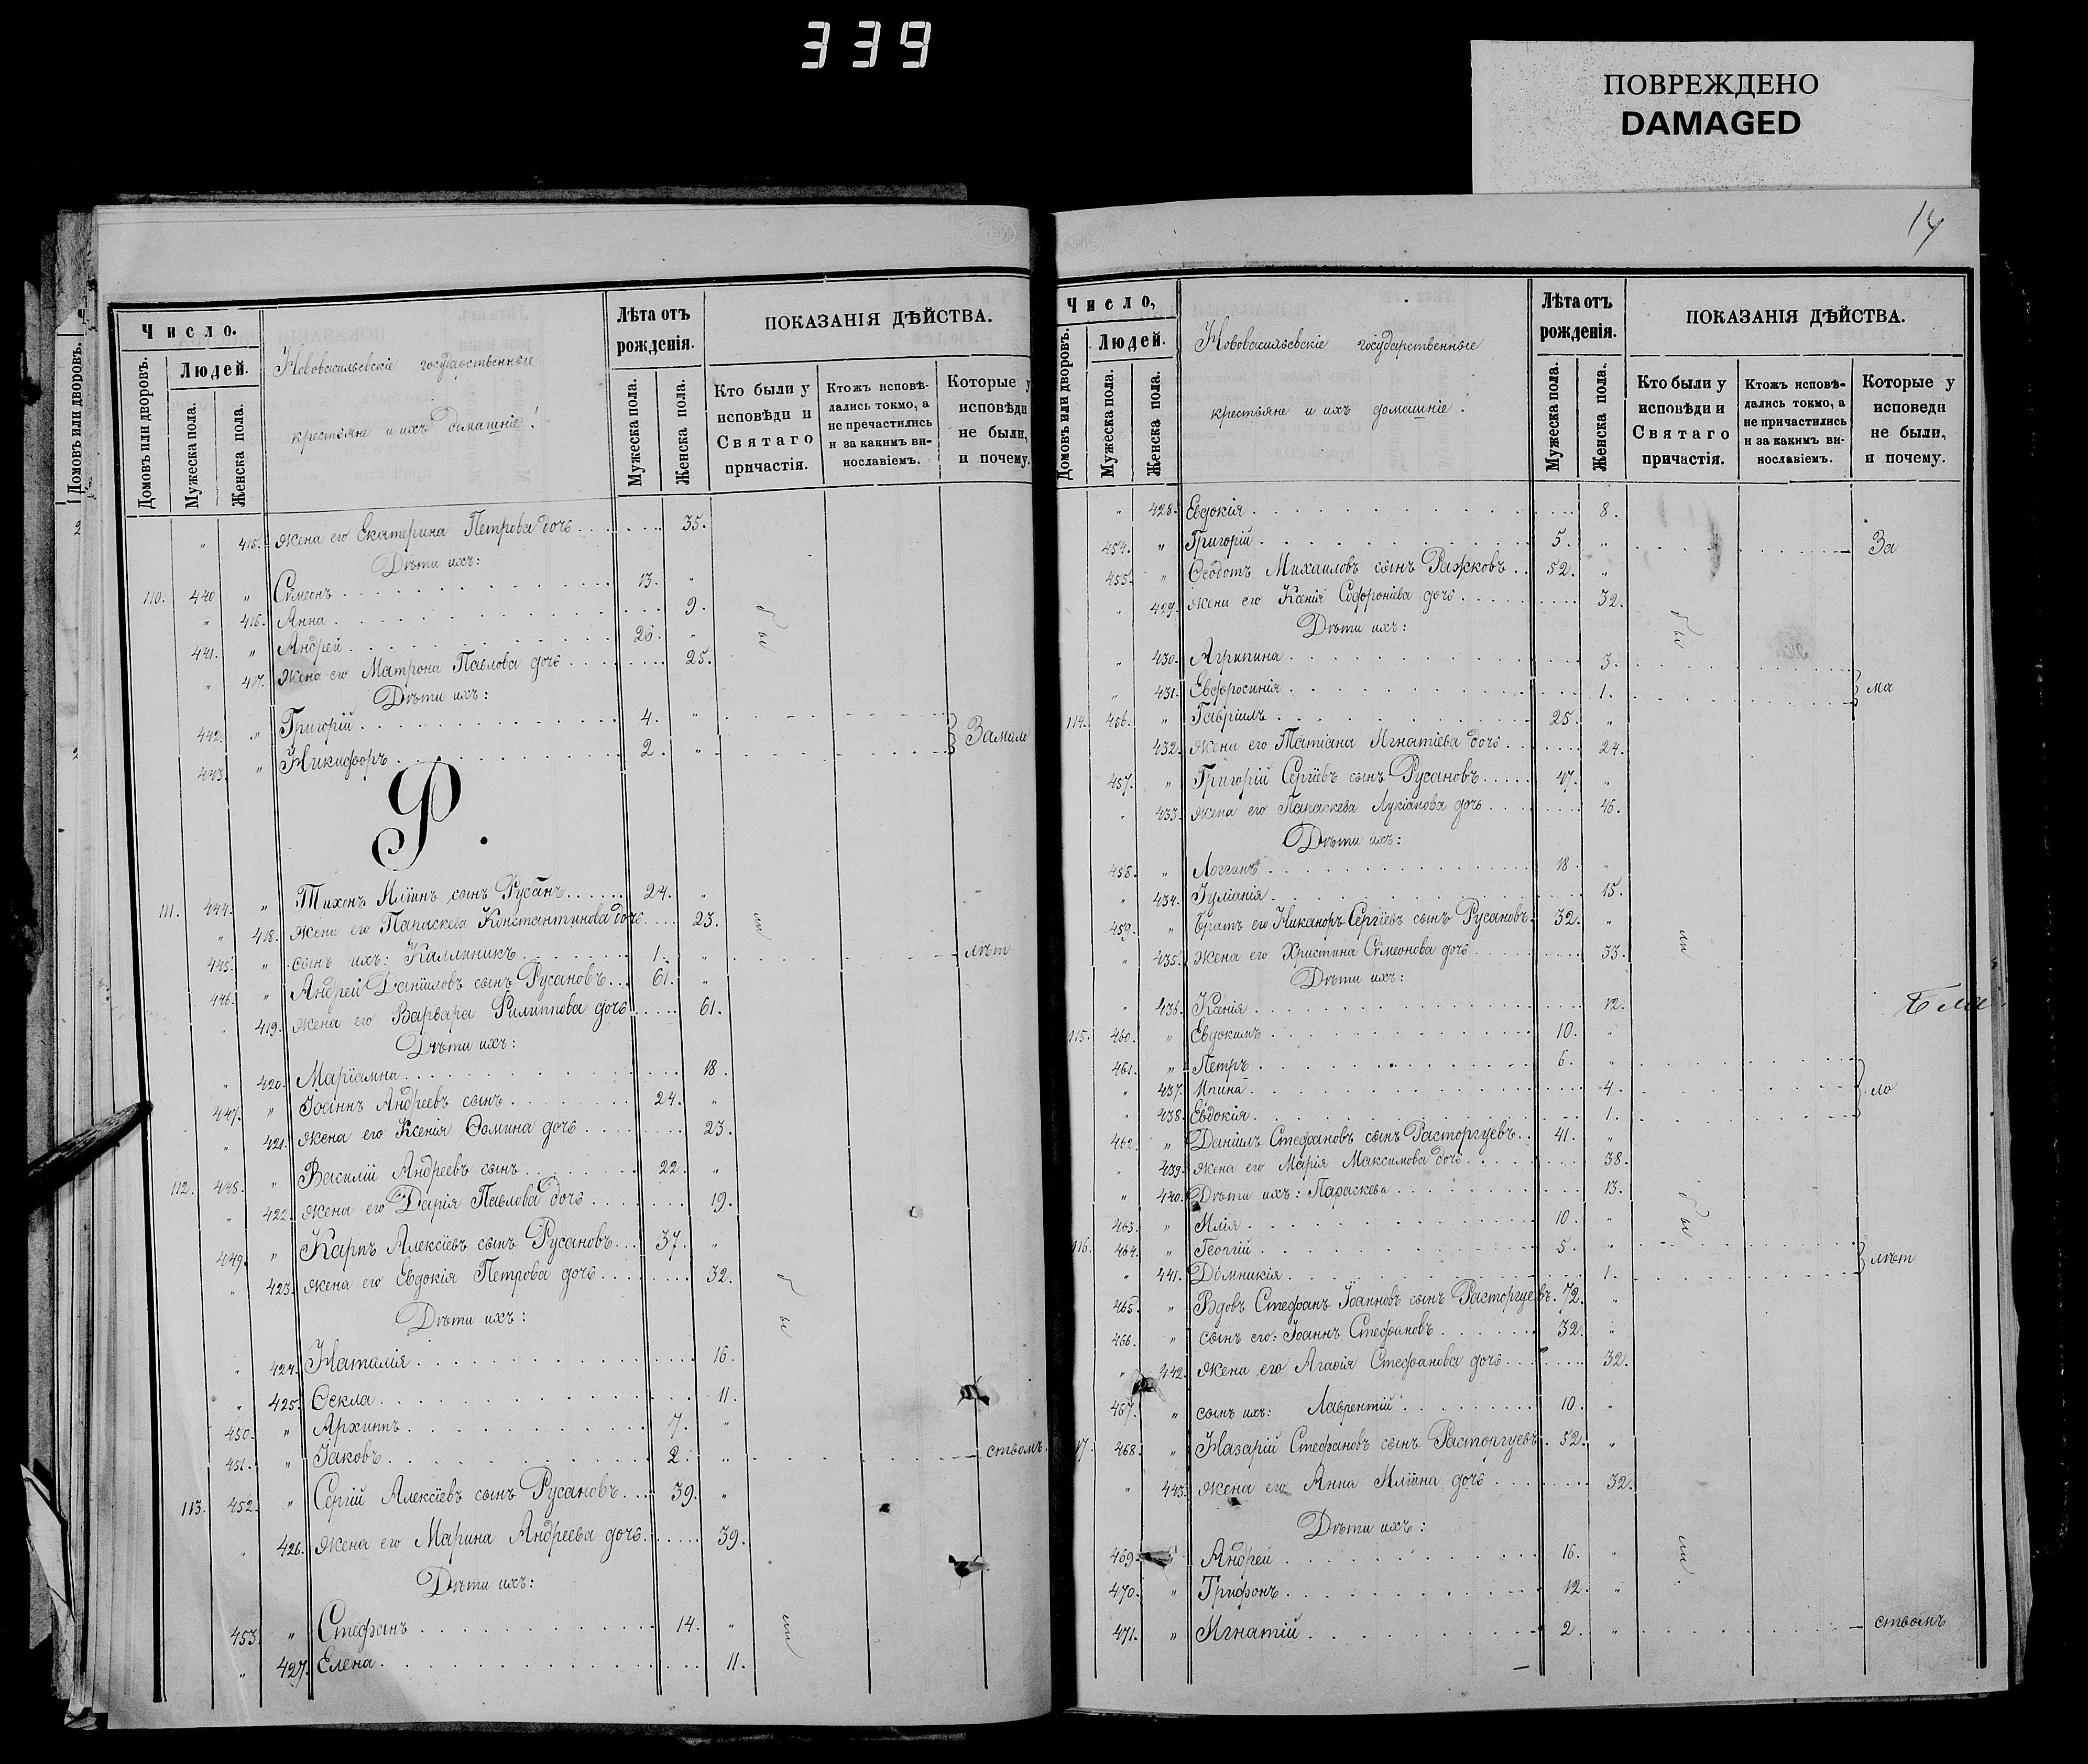 339
ПОВРЕЖДЕНО
DAMAGED
Домовъ или дворовъ.
Число.
Домовъ или дворовъ.
Людей.
Мужеска пола.
Женска пола.
Нововасильевскіе государственные
крестьяне и ихъ домашніе:
Лѣта отъ рожденія.
Мужеска пола.
Женска пола.
ПОКАЗАНІЯ ДѢЙСТВА.
Кто были у исповѣди и Святаго причастія.
Ктожъ исповѣ-
дались токмо, а
не пречастились
и за какимъ ви-
нославіемъ.
Которые у
исповѣди
не были,
и почему.
" 415. жена его Екатерина Петрова дочь 35.
Дѣти ихъ:
110. 440 " Сѵмеонъ 13. "
" 416. Анна 9.
441. " Андрей 26. "
" 417. Жена его Матрона Павлова дочь 25.
Дѣти ихъ:
442. " Григорій 4. "
443. " Никифоръ 2. " Замало
бы
Р.
111. 444. " Тихонъ Иліинъ сынъ Русанъ 24. "
" 418. жена его Параскева Константинова дочь 23.
445. " сынъ ихъ: Каллиникъ 1. " лѣт
446. " Андрей Даніиловъ сынъ Русановъ 61. "
" 419. жена его Варвара Филиппова дочь 61.
Дѣти ихъ:
" 420. Маріамна 18.
447. " Іоаннъ Андреевъ сынъ 24. "
" 421. жена его Ксенія Ѳомина дочь 23.
112. 448. " Василій Андреевъ сынъ 22. "
" 422. жена его Дарія Павлова дочь 19.
449. " Карпъ Алексіевъ сынъ Русановъ 37. "
" 423. жена его Евдокія Петрова дочь 32.
бы
Дѣти ихъ:
" 424. Наталія 16.
" 425. Ѳекла 11.
450. " Архиппъ 7. "
451. " Іаковъ 2. " ствомъ.
113. 452. " Сергій Алексіевъ сынъ Русановъ 39. "
" 426. жена его Марина Андреева дочь 39.
Дѣти ихъ:
453. " Стефанъ 14. "
" 427. Елена 11.
14
Число,
Домовъ или дворовъ.
Людей.
Мужеска пола.
Женска пола.
Нововасильевскіе государственные
крестьяне и ихъ домашніе:
Лѣта отъ рожденія.
Мужеска пола.
Женска пола.
ПОКАЗАНІЯ ДѢЙСТВА.
Кто были у исповѣди и Святаго причастія.
Ктожъ исповѣ-
дались токмо, а
не причастились
и за какимъ ви-
нославіемъ.
Которые у
исповеди
не были,
и почему.
" 428. Евдокія 8.
454. " Григорій 5. " За
455. " Ѳеодотъ Михаиловъ сынъ Ражковъ 52. "
" 429. жена его Ксенія Софроніева дочь 32.
Дѣти ихъ:
бы
" 430. Агрипина 3.
" 431. Евфросинія 1. ма
114. 456. " Гавріилъ 25. "
432. жена его Татіана Игнатіева дочь 24.
457. " Григорій Сергіевъ сынъ Русановъ 47. "
" 433. жена его Параскева Лукіанова дочь 46.
Дѣти ихъ:
458. " Логгинъ 18. "
" 434. Іуліанія 15.
459. " братъ его Никаноръ Сергіевъ сынъ Русановъ 32. "
" 435. жена его Христина Сѵмеонова дочь 33.
Дѣти ихъ:
" 436. Ксенія 12.
115. 460. " Евдокимъ 10. "
461. " Петръ 6. "
" 437. Ирина 4. ло
" 438. Евдокія 1.
462. " Даніилъ Стефановъ сынъ Расторгуевъ 41. "
" 439. жена его Марія Максимова дочь 38.
" 440. Дѣти ихъ: Параскева 13.
463. " Илія 10. "
бы
116. 464. " Георгій 5. "
" 441. Домникія 1. лѣт
465. " Вдовъ Стефанъ Іоанновъ сынъ Расторгуевъ. 72. "
466. " сынъ его: Іоаннъ Стефановъ 32. "
" 442. жена его Агаѳія Стефанова дочь 32.
467. " сынъ ихъ: Лаврентій 10. "
17. 468. " Назарій Стефановъ сынъ Расторгуевъ. 52. "
" 443. жена его Анна Иліина дочь 32.
Дѣти ихъ:
469. Андрей 16. "
470. " Трифонъ 12. "
471. " Игнатій 2. " ствомъ